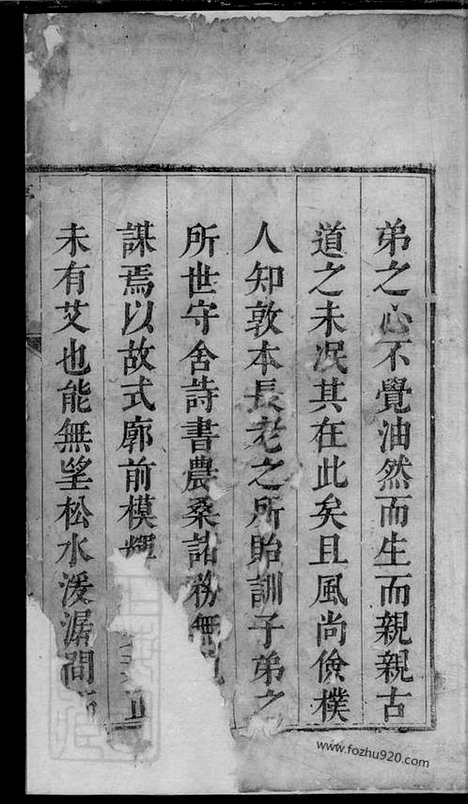 弟之心不覺油然而生而親親古
道之未泯其在此矣且風尚儉樸
人知敦本長老之所貽訓子弟之
所世守舍詩書農桑諸務無
謀焉以故式廓前模
未有艾也能無望松水湲潺間
www.fozhu920.com